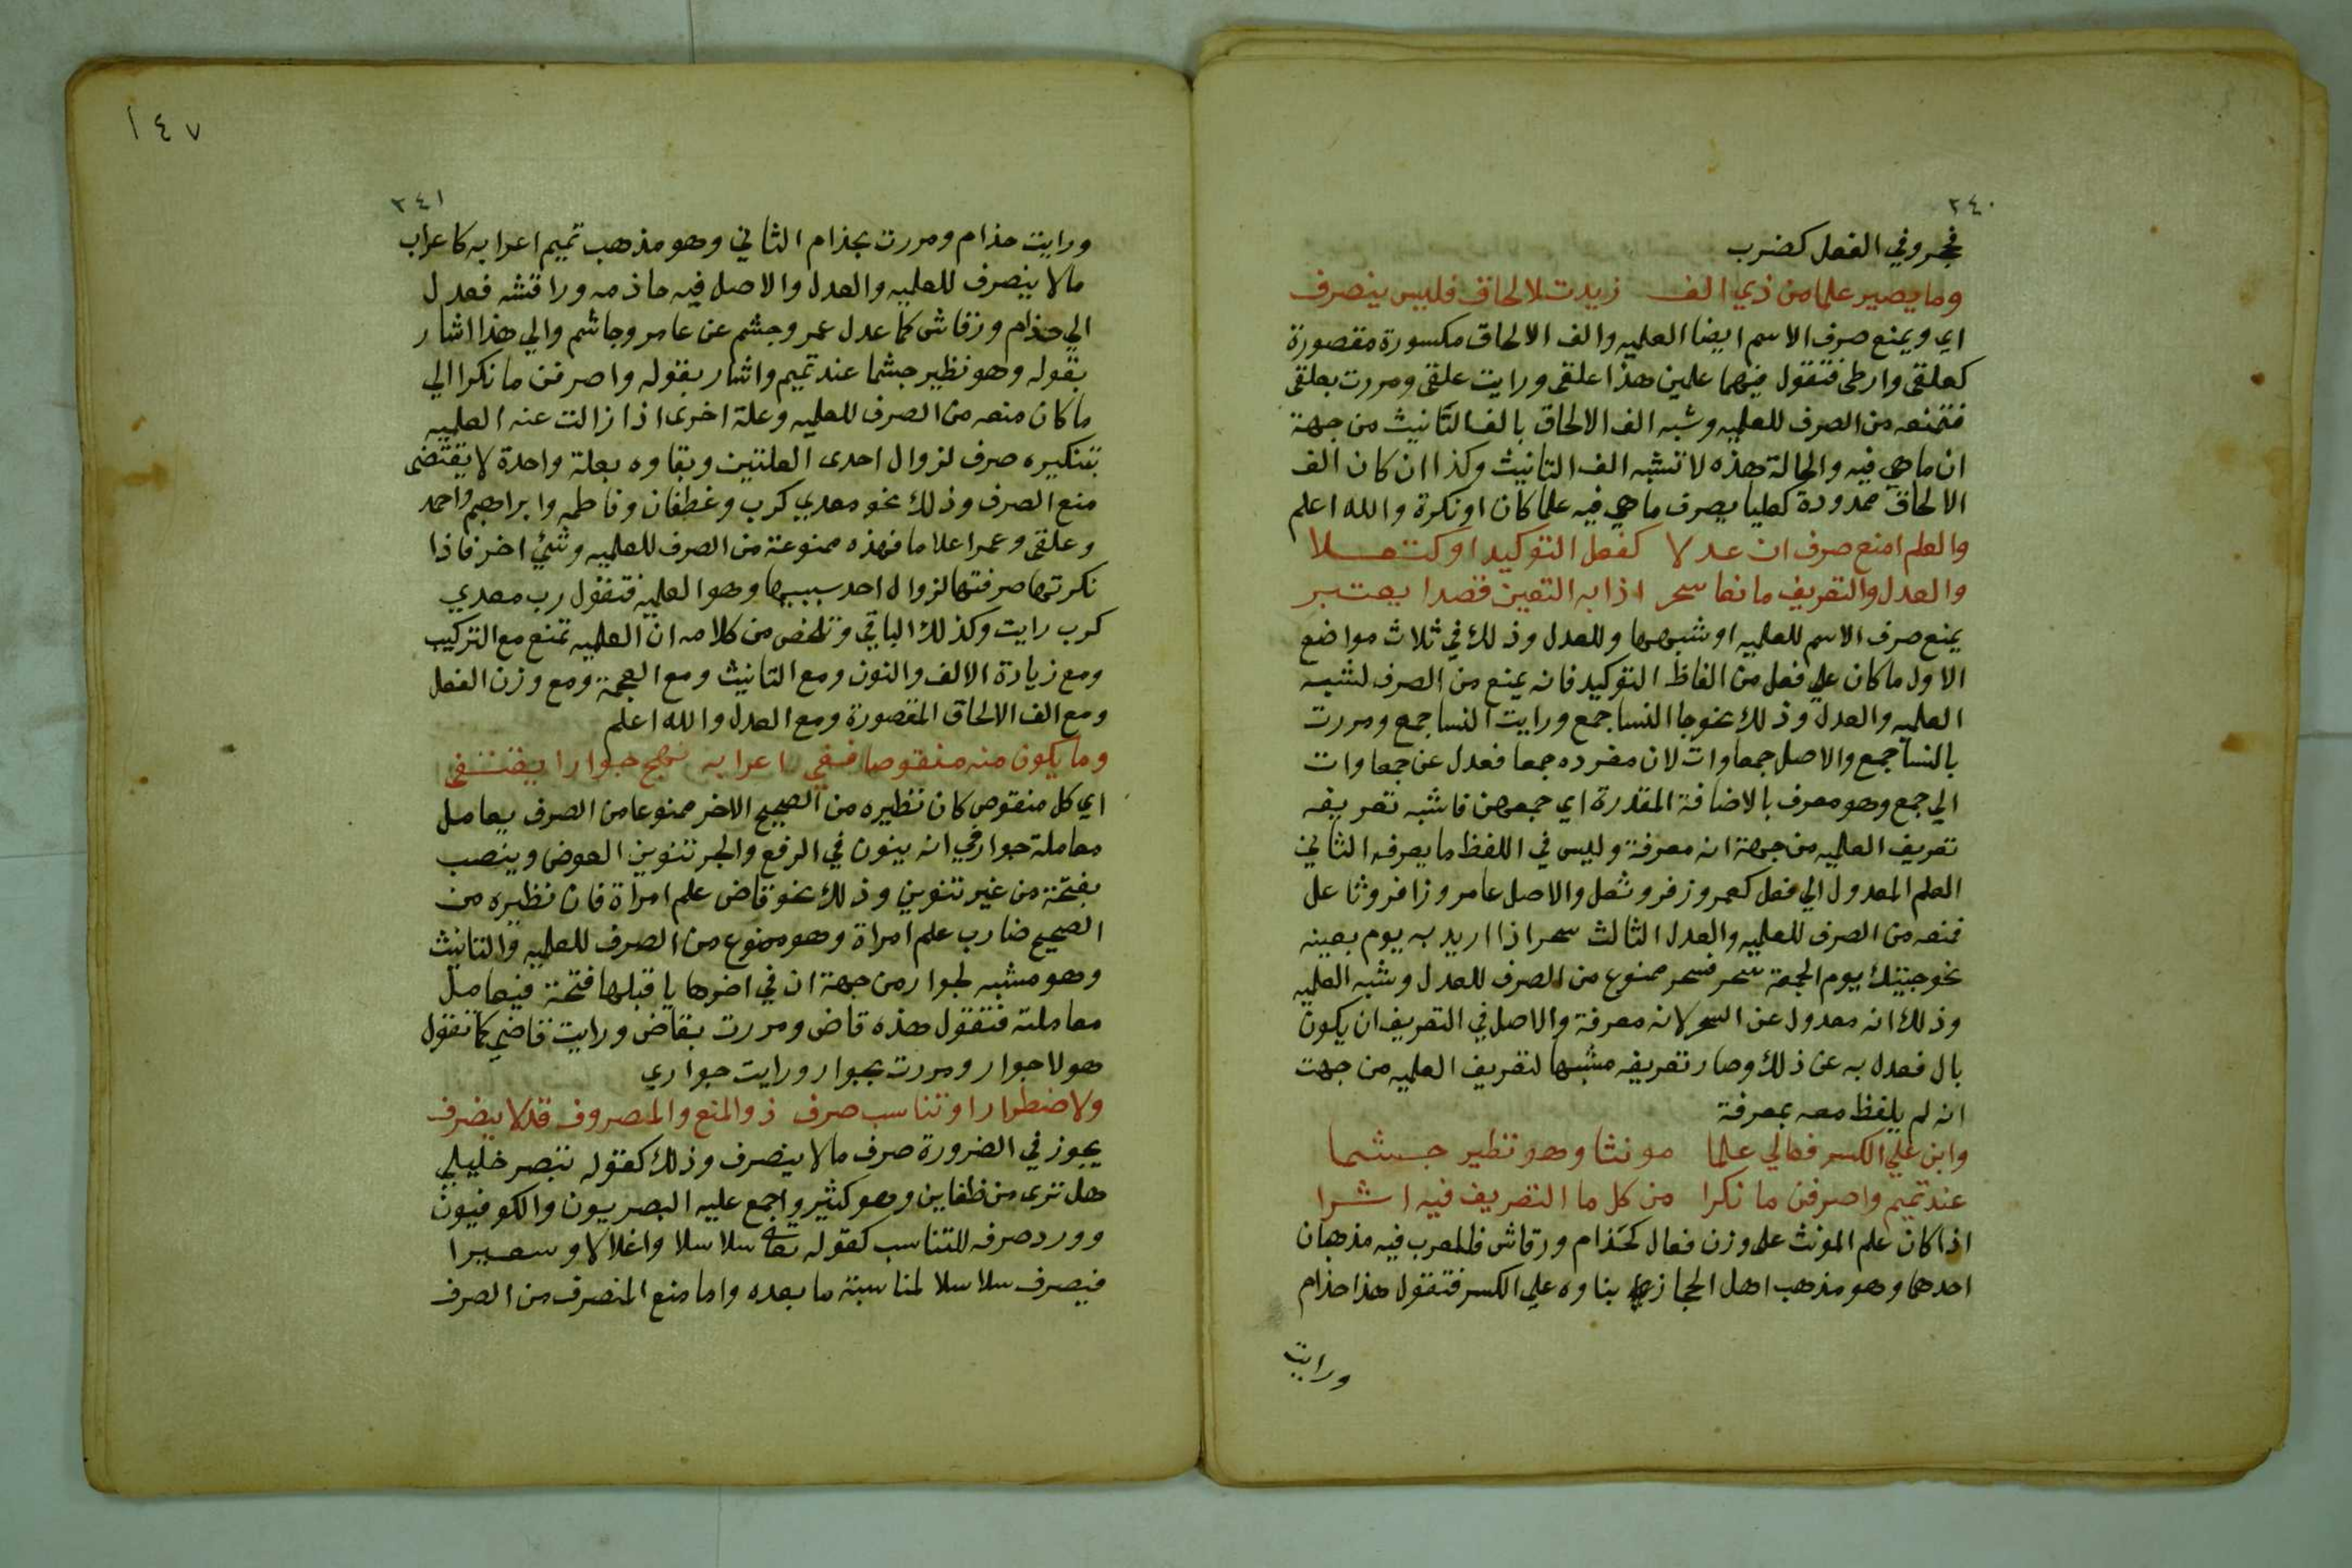 ٢٤٠
فجر وفي الفعل كضرب
وما يصير علما من ذي الف زيدت لالحاق فليس ينصرف
اي ويمنع صرف الاسم ايضا العلميه والف الالحاق مكسورة مقصورة
كعلقى وارطى فتقول فيهما علمين هذا علقى ورايت علقى ومررت بعلقى
فتمنعه من الصرف للعلميه وشبه الف الالحاق بالف التانيث من جهة
ان ما هي فيه والحالة هذه لا تشبه الف التانيث وكذا ان كان الف
الالحاق ممدودة كعلبا يصرف ما هي فيه علما كان او نكرة والله اعلم
والعلم امنع صرف ان عدلا كفعل التوكيد او كثعلا
والعدل والتعريف مانعا سحر اذا به التعيين قصدا يعتبر
يمنع صرف الاسم للعلميه او شبهها وللعدل وذلك في ثلاث مواضع
الاول ما كان علي فعل من الفاظ التوكيد فانه يمنع من الصرف لشبه
العلميه والعدل وذلك نحو جا النسا جمع ورايت النسا جمع ومررت
بالنسا جمع والاصل جمعاوات لان مفرده جمعا فعدل عن جمعاوات
الي جمع وهو معرف بالاضافة المقدرة اي جمعهن فاشبه تعريفه
تعريف العلميه من جهة انه معرفة وليس في اللفظ ما يعرفه الثاني
العلم المعدول الي فعل كعمر وزفر وثعل والاصل عامر وزافر وثاعل
فمنعه من الصرف للعلميه والعدل الثالث سحر اذا اريد به يوم بعينه
نحو جيتك يوم الجمعة سحر فسحر ممنوع من الصرف للعدل وشبه العلميه
وذلك انه معدول عن السحر لانه معرفة والاصل في التعريف ان يكون
بال فعدل به عن ذلك وصار تعريفه مشبها لتعريف العلميه من جهت
انه لم يلفظ معه بمعرفة
وابن علي الكسر فعالي علما مونثا وهو نظير جشما
عند تميم واصرفن ما نكرا من كل ما التعريف فيه اشرا
اذا كان علم المونث على وزن فعال كحذام ورقاش فللعرب فيه مذهبان
احدهما وهو مذهب اهل الحجاز بناوه علي الكسر فتقول هذا حذام
ورايت
١٤٧
٢٤١
ورايت حذام ومررت بحذام الثاني وهو مذهب تميم اعرابه كاعراب
مالا ينصرف للعلميه والعدل والاصل فيه حاذمه وراقشه فعدل
الي حذام ورقاش كما عدل عمر وجشم عن عامر وجاشم والي هذا اشار
بقوله وهو نظير جشما عند تميم واشار بقوله واصرفن ما نكرا الي
ما كان منعه من الصرف للعلميه وعلة اخرى اذا زالت عنه العلميه
بتنكيره صرف لزوال احدى العلتين وبقاوه بعلة واحدة لا يقتضى
منع الصرف وذلك نحو معدي كرب وغطفان وفاطمه وابراهيم واحمد
وعلقى وعمر اعلاما فهذه ممنوعة من الصرف للعلميه وشيئ اخر فاذا
نكرتها صرفتها لزوال احد سببيها وهو العلميه فتقول رب معدي
كرب رايت وكذلك الباقي وتلخص من كلامه ان العلميه تمنع مع التركيب
ومع زيادة الالف والنون ومع التانيث ومع العجمة ومع وزن الفعل
ومع الف الالحاق المقصورة ومع العدل والله اعلم
وما يكون منه منقوصا ففي اعرابه نهج جوارا يقتفى
اي كل منقوص كان نظيره من الصحيح الاخر ممنوعا من الصرف يعامل
معاملة جوار في انه ينون في الرفع والجر تنوين العوض وينصب
بفتحة من غير تنوين وذلك نحو قاض علم امراة فان نظيره من
الصحيح ضارب علم امراة وهو ممنوع من الصرف للعلميه والتانيث
وهو مشبه لجوار من جهة ان في اخرها يا قبلها فتحة فيعامل
معاملته فتقول هذه قاض ومررت بقاض ورايت قاضي كما تقول
هولا جوار ومررت بجوار ورايت جواري
ولاضطرار او تناسب صرف ذو المنع والمصروف قد لا ينصرف
يجوز في الضرورة صرف مالا ينصرف وذلك كقوله تبصر خليلي
هل ترى من ظعاين وهو كثير واجمع عليه البصريون والكوفيون
وورد صرفه للتناسب كقوله تعالى سلاسلا واغلالا وسعيرا
فيصرف سلاسلا لمناسبة ما بعده واما منع المنصرف من الصرف